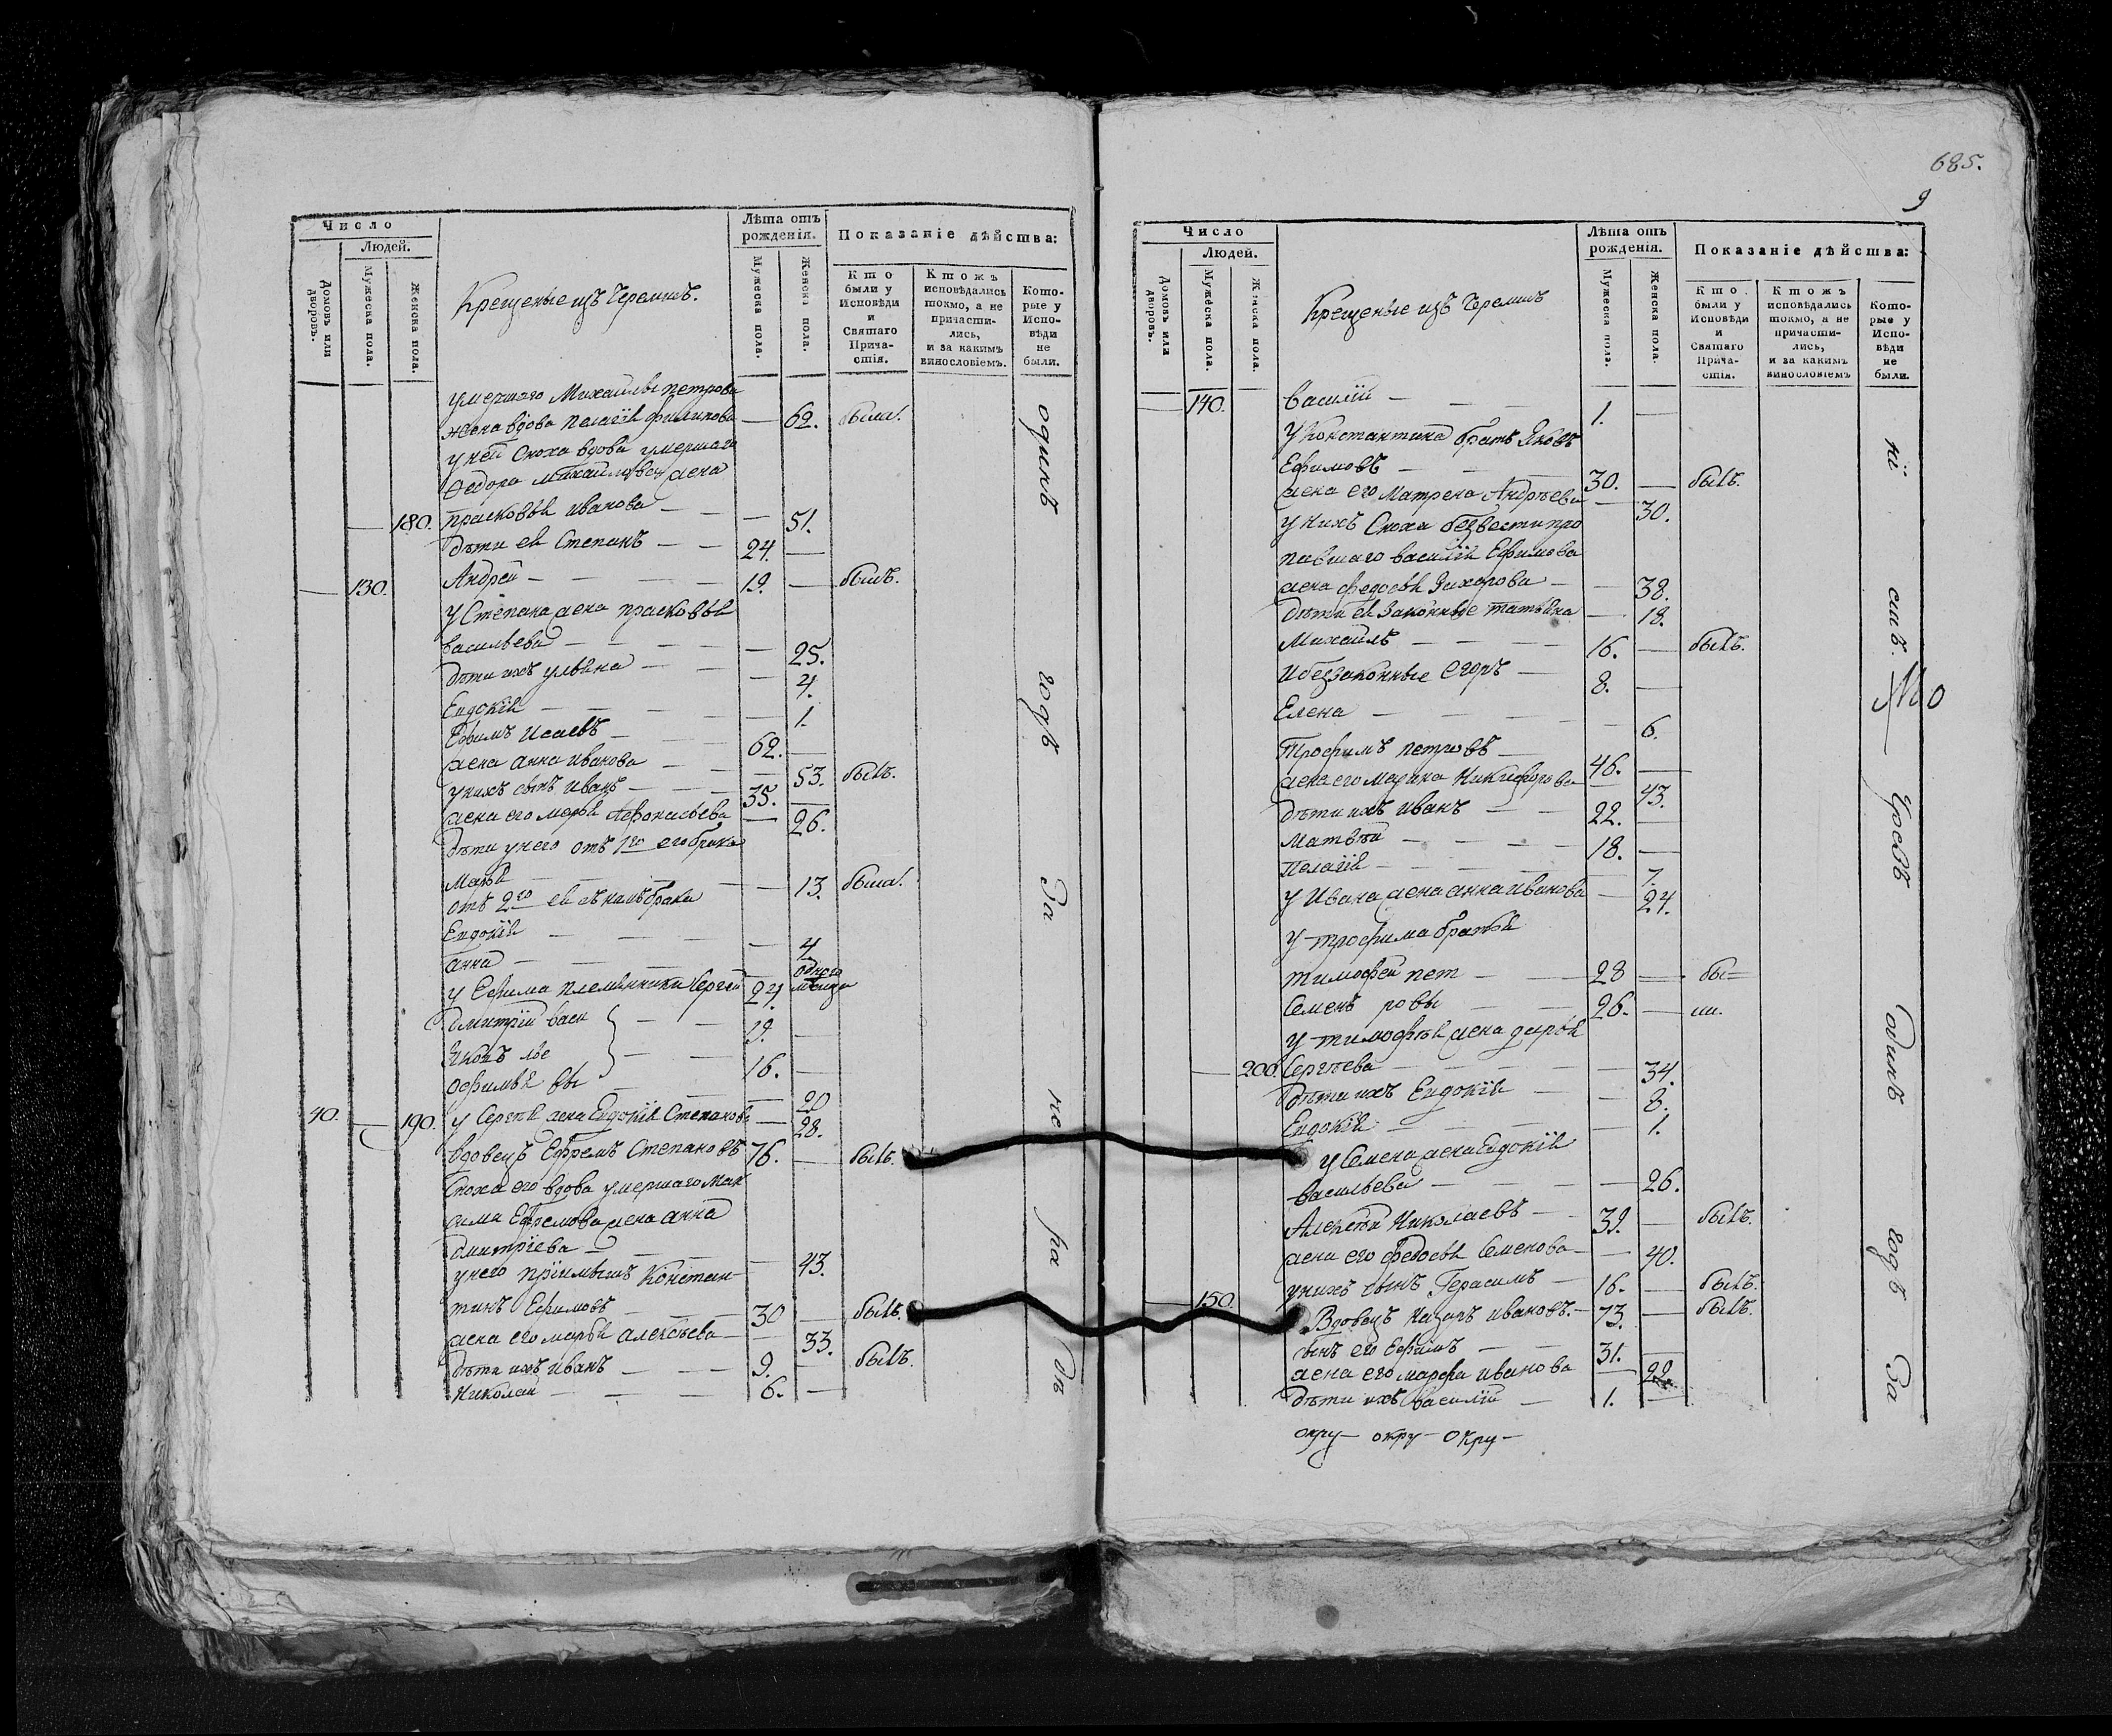 685.
9
Число
Людей.
Домовъ или дворовъ.
Мужеска пола.
Женска пола.
Крещеные изъ Черемисъ.
Лѣта отъ рожденія.
Мужеска пола.
Женска пола.
Показаніе дѣйства:
Кто были у Исповѣди и Святаго Причастія.
Ктожъ исповѣдались токмо, а не причастились, и за какимъ винословіемъ.
Которые у Исповѣди не были.
умершаго Михаила Петрова
жена вдова Пелагія Филипова — 62. была.
у ней сноха вдова умершаго
Федора Михайлова жена
180. Прасковья Иванова — 51.
дѣти ея Степанъ — 24. —
130. Андрей — 19. — былъ.
у Степана жена Прасковья
Васильева — 25.
дѣти ихъ Ульяна — 4.
Евдокія — 1.
Ефимъ Исаевъ — 62. —
жена Анна Иванова — 53. былъ.
у нихъ сынъ Иванъ — 35. —
жена его Марья Афонасьева — 26.
дѣти у него отъ 1го его брака
Марья — 13. была.
отъ 2го
Евдокія — 4
Анна — одного месяца
у Ефима племянники Сергей 27. —
Дмитрій Васи — 19. —
Яковъ лье — 16. —
Офимья вы — 20
40. — 190. у Сергѣя жена Евдокія Степанова — 28.
вдовецъ Ефремъ Степановъ 76. — былъ.
сноха его вдова умершаго Мак
сима Ефремова жена Анна
Дмитріева — 43.
у него пріимышъ Констан
тинъ Ефимовъ — 30 — былъ.
жена его Марья Алексѣева — 33.
дѣти ихъ Иванъ — 9. — былъ.
Николай — 6. —
одинъ годъ За не ра дѣ
Число
Людей.
Домовъ или дворовъ.
Мужеска пола.
Женска пола.
Крещеные изъ Черемисъ
Лѣта отъ рожденія.
Мужеска пола.
Женска пола.
Показаніе дѣйства:
Кто были у Исповѣди и Святаго Причастія.
Ктожъ исповѣдались токмо, а не причастились, и за какимъ винословіемъ
Которые у Исповѣди не были.
140. Василій — 1. —
у Константина братъ Яковъ
Ефимовъ — 30. — былъ.
жена его Матрена Андрѣева — 30.
у нихъ сноха безвѣсти про
павшаго Василія Ефимова
жена Федосья Захарова — 38.
дѣти ея законные Татьяна — 18.
Михаилъ — 16. — былъ.
и беззаконные Егоръ — 8. —
Елена — 6.
Трофимъ Петровъ — 46. —
жена его Марина Никифорова — 43.
дѣти ихъ Иванъ — 22. —
Матвѣй — 18. —
Пелагія — 7.
у Ивана жена Анна Иванова — 24.
у Трофима братья
Тимофей Пет — 28 — бы=
Семенъ ровы — 26. — ли.
у Тимофѣя жена Дарья
200. Сергѣева — 34.
дѣти ихъ Евдокія — 8.
Евдокія — 1.
у Семена жена Евдокія
Васильева — 26.
Алексѣй Николаевъ — 39. — былъ.
жена его Федосья Семенова — 40.
у нихъ сынъ Герасимъ — 16. — былъ.
150. Вдовецъ Назаръ Ивановъ. — 73. — былъ.
сынъ его Ефимъ — 31. —
жена его Марфа Иванова — 22.
дѣти ихъ Василій — 1. —
окру— окру— окру—
ні Одинъ годъ За